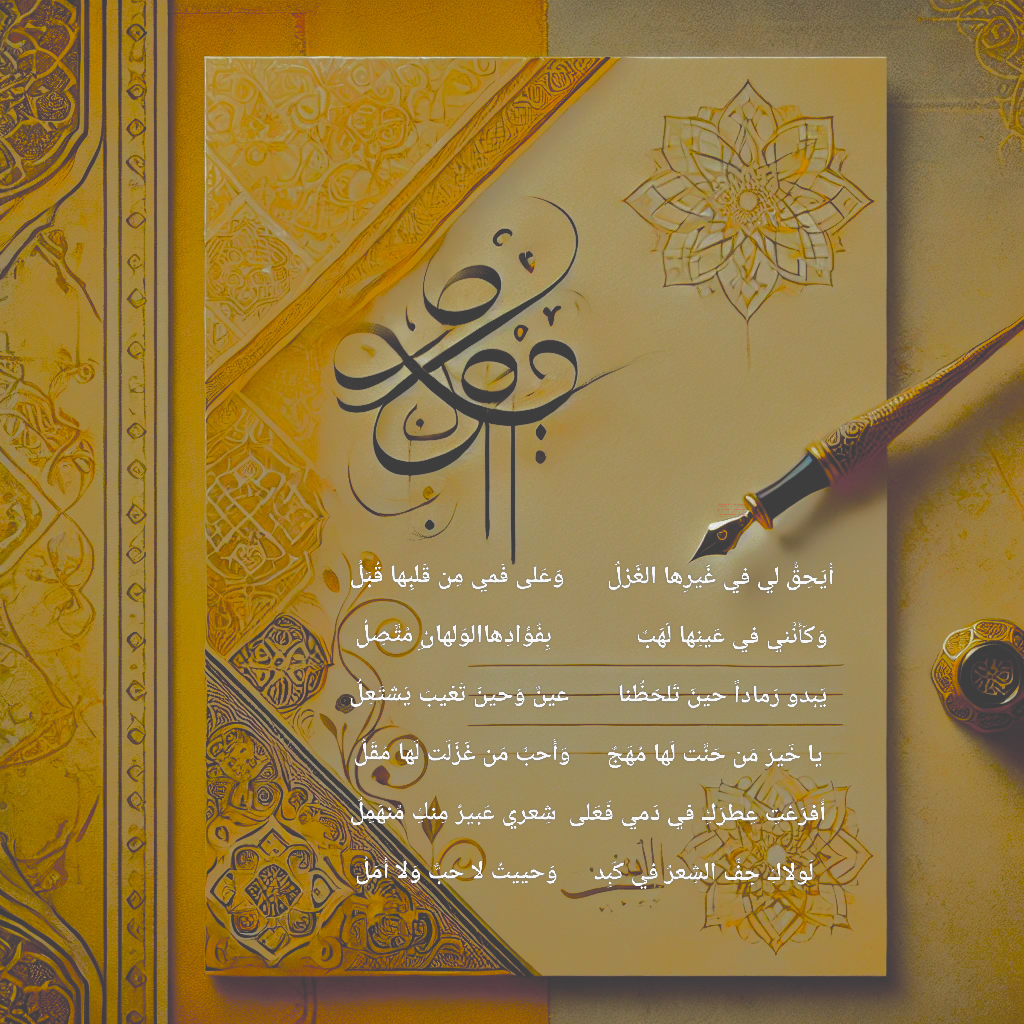 أَيَحِقُّ لي في غَيرِها الغَزلُ وَعَلى فَمي مِن قَلبِها قُبَلُ
وَكَأَنَّني في عَينِها لَهَبٌ بِفُؤادِهاالوَلهانِ مُتَّصِلُ
يَبدو رَماداً حينَ تَلحَظُنا عينٌ وَحينَ تَغيبُ يَشتَعِلُ
يا خَيرَ مَن حَنَّت لَها مُهَجٌ وَأَحبُّ مَن غَزَلَت لَها مُقَلُ
أَفرَغتِ عِطرَكِ في دَمي فَعَلى شِعري عَبيرٌ مِنكِ مُنهَمِلُ
لَولاكِ جفَّ الشِعرُ في كَبِد وَحييتُ لا حبٌ وَلا أمَلُ